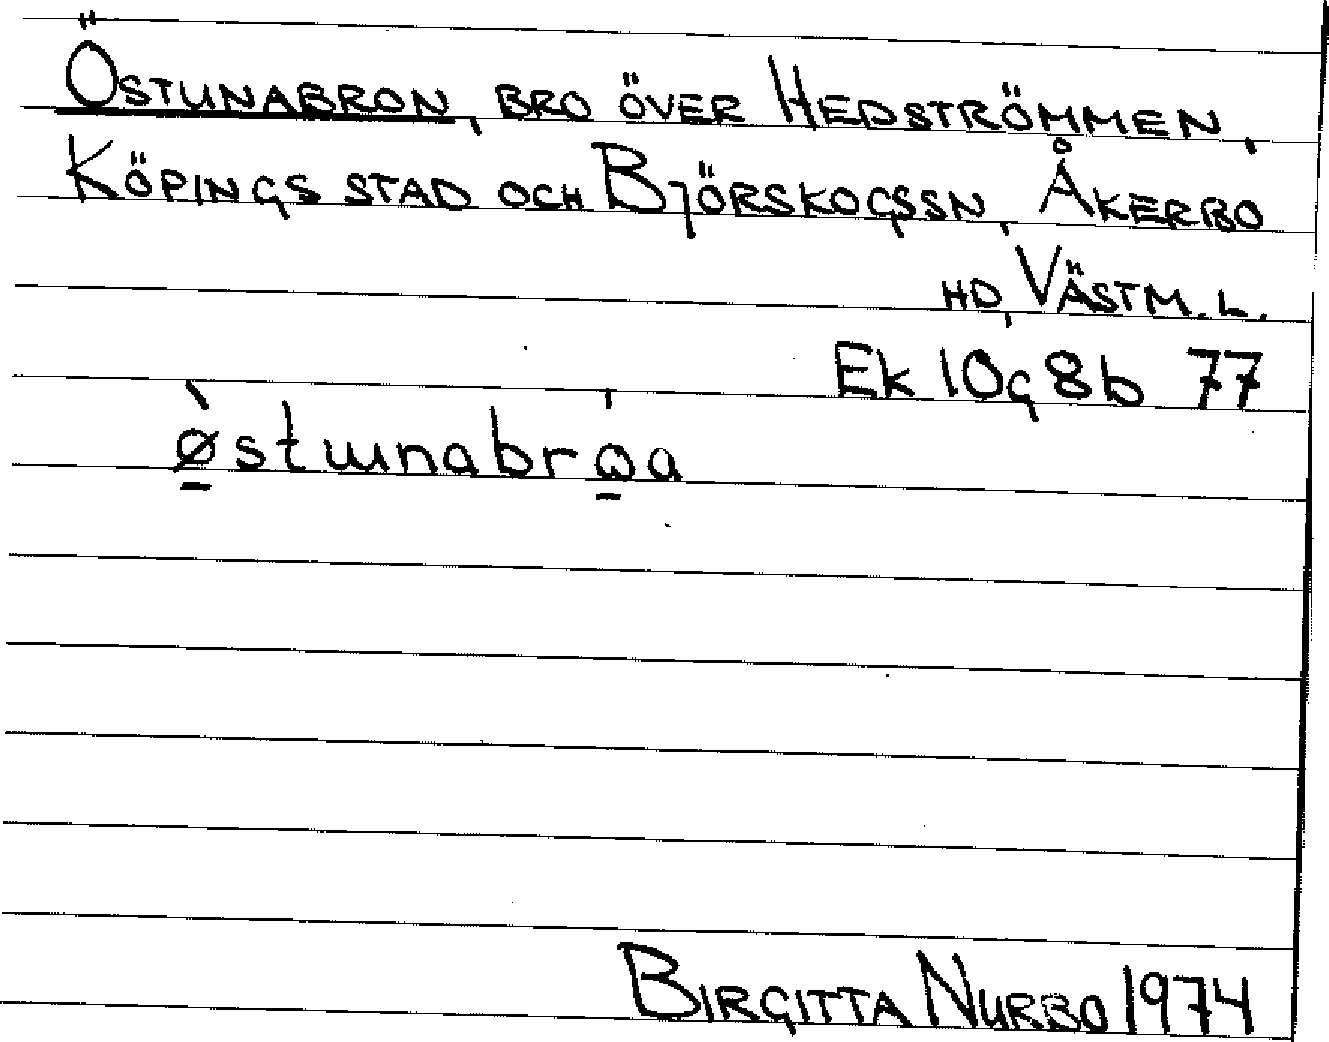 Östunabron, bro över Hedströmmen,
Köpings stad och Björskogssn, Åkerbo
hd, Västm. l.
Ek 10g 8b 77
ø̀stɯnabrωa
Birgitta Nurbo 1974